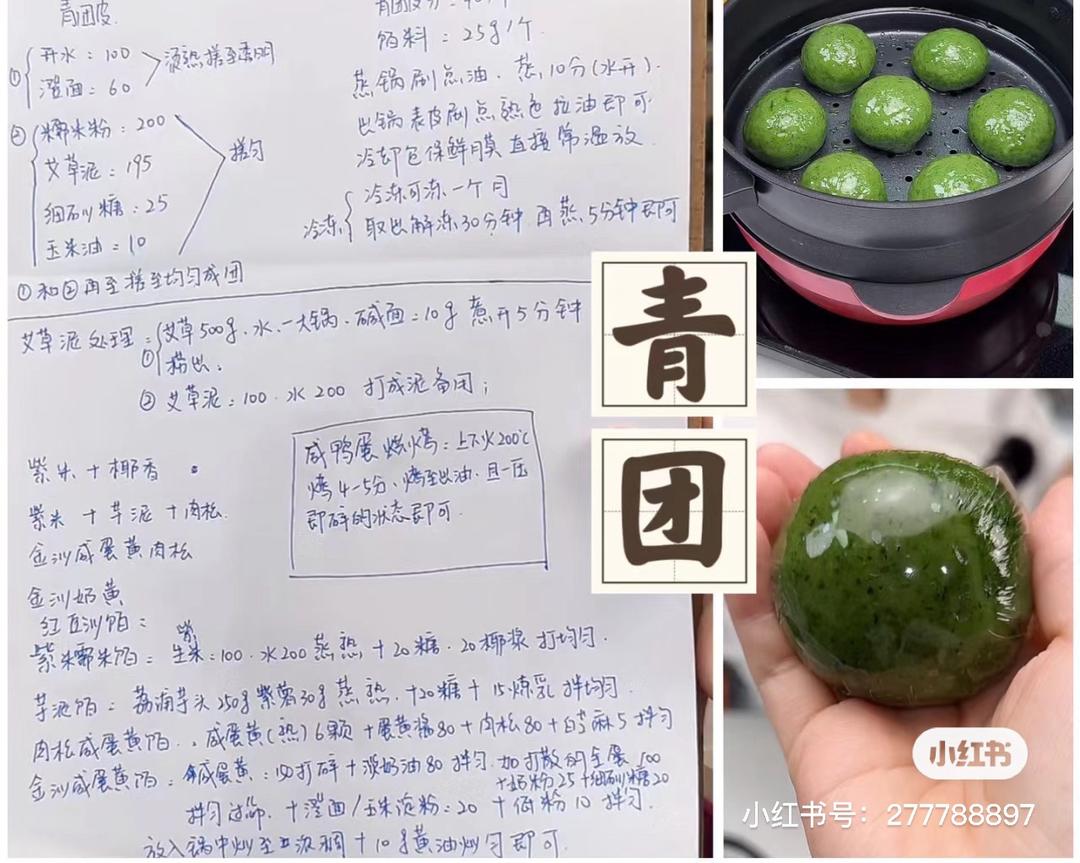 青团皮
① 开水：100
澄面：60
烫熟搓至透明
② 糯米粉：200
艾草泥：195
细砂糖：25
玉米油：10
搓匀
①和②再至搓至均匀成团
馅料：25g/个.
蒸锅刷点油. 蒸10分(水开).
出锅表皮刷点熟色拉油即可
冷却包保鲜膜直接常温放.
冷冻
冷冻可冻一个月
取出解冻30分钟再蒸5分钟即可
艾草泥处理：
① 艾草500g.水.一大锅.碱面：10g 煮开5分钟
捞出.
② 艾草泥：100.水200 打成泥备用；
咸鸭蛋烘烤：上下火200℃
烤4-5分.烤至出油.且一压
即碎的状态即可.
紫米+椰香
紫米+芋泥+肉松.
金沙咸蛋黄肉松
金沙奶黄
红豆沙馅：
紫米糯米馅：生紫米：100.水200蒸熟+20糖.20椰浆 打均匀.
芋泥馅：荔浦芋头250g紫薯30g蒸熟.+20糖+15炼乳拌均匀.
肉松咸蛋黄馅：咸蛋黄(熟)6颗+蛋黄酱80+肉松80+白芝麻5拌匀
金沙咸蛋黄馅：咸蛋黄：打碎+淡奶油80拌匀.加打散的全蛋100
+奶粉25+细砂糖20
拌匀过筛.+澄面/玉米淀粉：20+低粉10拌匀.
放入锅中炒至+10g黄油炒匀即可.
青
团
小红书
小红书号：277788897